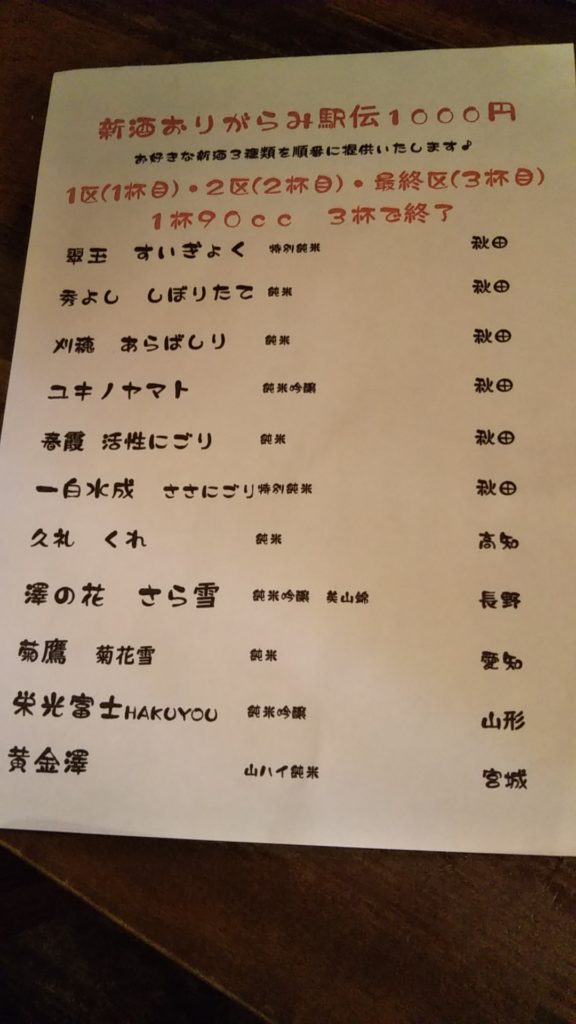 新酒おりがらみ駅伝1000円
お好きな新酒3種類を順番に提供いたします♪
1区(1杯目)・2区(2杯目)・最終区(3杯目)
1杯90cc 3杯で終了
翠玉 すいぎょく 特別純米 秋田
秀よし しぼりたて 純米 秋田
刈穂 あらばしり 純米 秋田
ユキノヤマト 純米吟醸 秋田
春霞 活性にごり 純米 秋田
一白水成 ささにごり 特別純米 秋田
久礼 くれ 純米 高知
澤の花 さら雪 純米吟醸 美山錦 長野
菊鷹 菊花雪 純米 愛知
栄光冨士HAKUYOU 純米吟醸 山形
黄金澤 山ハイ純米 宮城